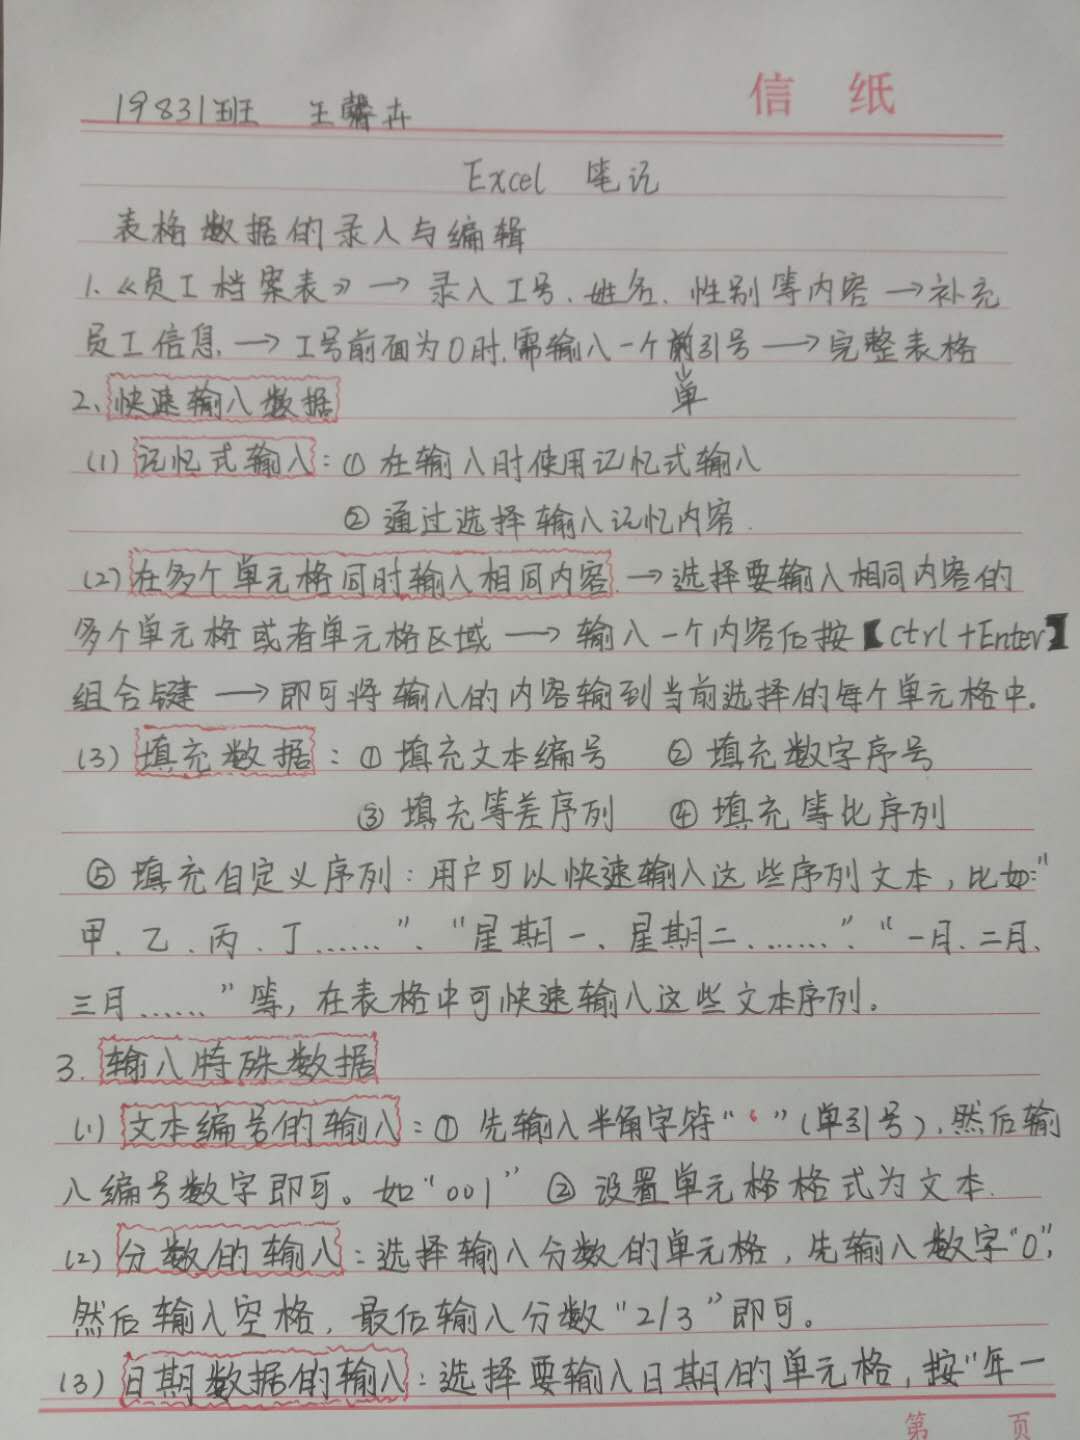 信 纸
19831班 王馨卉
Excel 笔记
表格数据的录入与编辑
1.《员工档案表》→录入工号、姓名、性别等内容→补充
员工信息→工号前面为0时,需输入一个前引号→完整表格
单
2.快速输入数据
(1)记忆式输入:①在输入时使用记忆式输入
②通过选择输入记忆内容.
(2)在多个单元格同时输入相同内容.→选择要输入相同内容的
多个单元格或者单元格区域→输入一个内容后按【Ctrl+Enter】
组合键→即可将输入的内容输到当前选择的每个单元格中.
(3)填充数据:①填充文本编号 ②填充数字序号
③填充等差序列 ④填充等比序列
⑤填充自定义序列:用户可以快速输入这些序列文本,比如:“
甲、乙、丙、丁……”、“星期一、星期二、……”、“一月、二月、
三月……”等,在表格中可快速输入这些文本序列。
3.输入特殊数据
(1)文本编号的输入:①先输入半角字符“‘”(单引号),然后输
入编号数字即可。如“001”②设置单元格格式为文本.
(2)分数的输入:选择输入分数的单元格,先输入数字“0”,
然后输入空格,最后输入分数“2/3”即可。
(3)日期数据的输入:选择要输入日期的单元格,按“年一
第 页